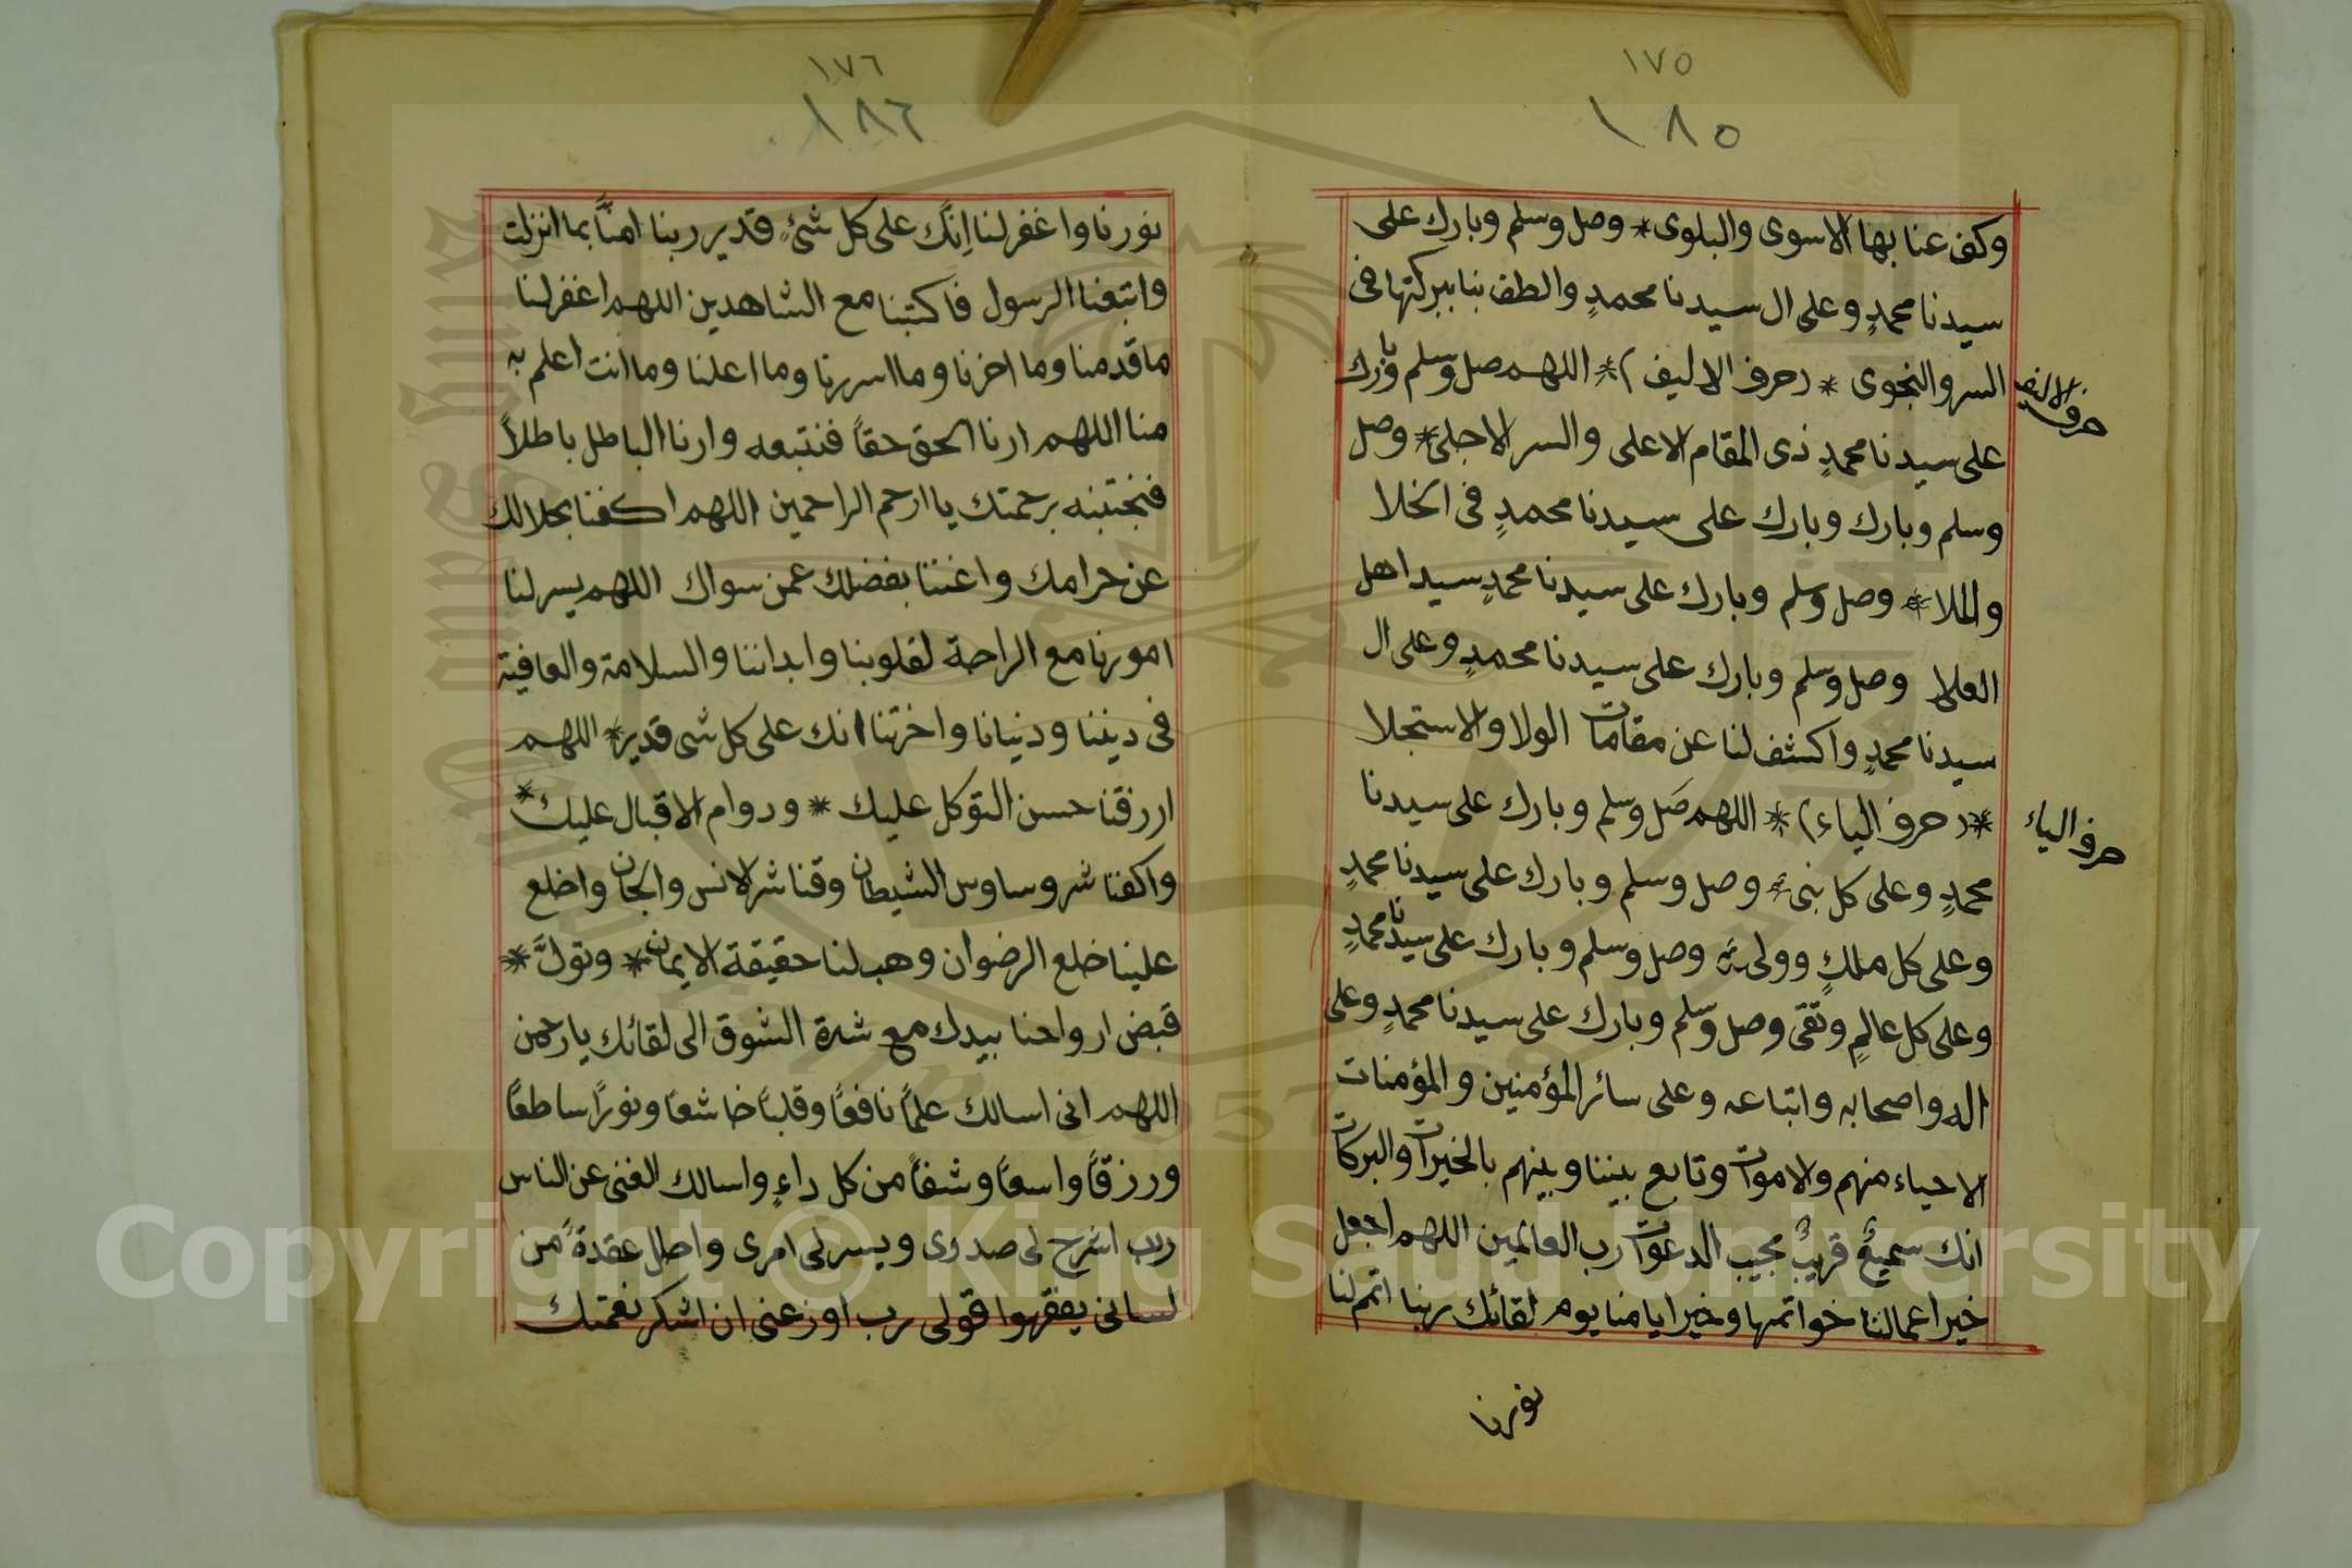 ١٧٥
١٨٥
وكف عنا بها الاسوى والبلوى * وصل وسلم وبارك على
سيدنا محمدٍ وعلى ال سيدنا محمدٍ والطف بنا ببركتها فى
السر والنجوى * (حرف الاليف) * اللهم صل وسلم وبارك
حرف الاليف
على سيدنا محمدٍ ذى المقام الاعلى والسر الاجلى * وصل
وسلم وبارك وبارك على سيدنا محمدٍ فى الخلا
والملا * وصل وسلم وبارك على سيدنا محمدٍ سيد اهل
العلا وصل وسلم وبارك على سيدنا محمدٍ وعلى ال
سيدنا محمدٍ واكشف لنا عن مقامات الولا والاستجلا
* (حرف الياء) * اللهم صَل وسلم وبارك على سيدنا
حرف الياء
محمدٍ وعلى كل نبى * وصل وسلم وبارك على سيدنا محمدٍ
وعلى كل ملكٍ وولى * وصل وسلم وبارك على سيدنا محمدٍ
وعلى كل عالمٍ وتقى وصل وسلم وبارك على سيدنا محمدٍ وعلى
اله واصحابه واتباعه وعلى سائر المؤمنين والمؤمنات
الاحياء منهم والاموات وتابع بيننا وبينهم بالخيرات والبركات
انك سميعٌ قريبٌ مجيب الدعوات رب العالمين اللهم اجعل
خير اعمالنا خواتمها وخير ايامنا يوم لقائك ربنا اتمم لنا
نورنا
١٧٦
١٨٦
نورنا واغفر لنا اِنَّك على كل شئٍ قدير ربنا امنَّا بما انزلت
واتبعنا الرسول فاكتبنا مع الشاهدين اللهم اغفر لنا
ما قدمنا وما اخرنا وما اسررنا وما اعلنا وما انت اعلم به
منا اللهم ارنا الحق حقاً فنتبعه وارنا الباطل باطلاً
فنجتنبه برحمتك يا ارحم الراحمين اللهم اكفنا بحلالك
عن حرامك واغننا بفضلك عمن سواك اللهم يسر لنا
امورنا مع الراحة لقلوبنا وابداننا والسلامة والعافية
فى ديننا ودنيانا واخرتنا انك على كل شى قدير * اللهم
ارزقنا حسن التوكل عليك * ودوام الاقبال عليك *
واكفنا شر وساوس الشيطان وقنا شر الانس والجان واخلع
علينا خلع الرضوان وهب لنا حقيقة الايمان * وتولَّ *
قبض ارواحنا بيدك مع شدة الشوق الى لقائك يا رحمن
اللهم انى اسالك علماً نافعاً وقلباً خاشعاً ونوراً ساطعاً
ورزقاً واسعاً وشفاً من كل داءٍ واسالك الغنى عن الناس
رب اشرح لى صدرى ويسر لى امرى واحلل عقدةً من
لسانى يفقهوا قولى رب اوزعنى ان اشكر نعمتك
Copyright © King Saud University